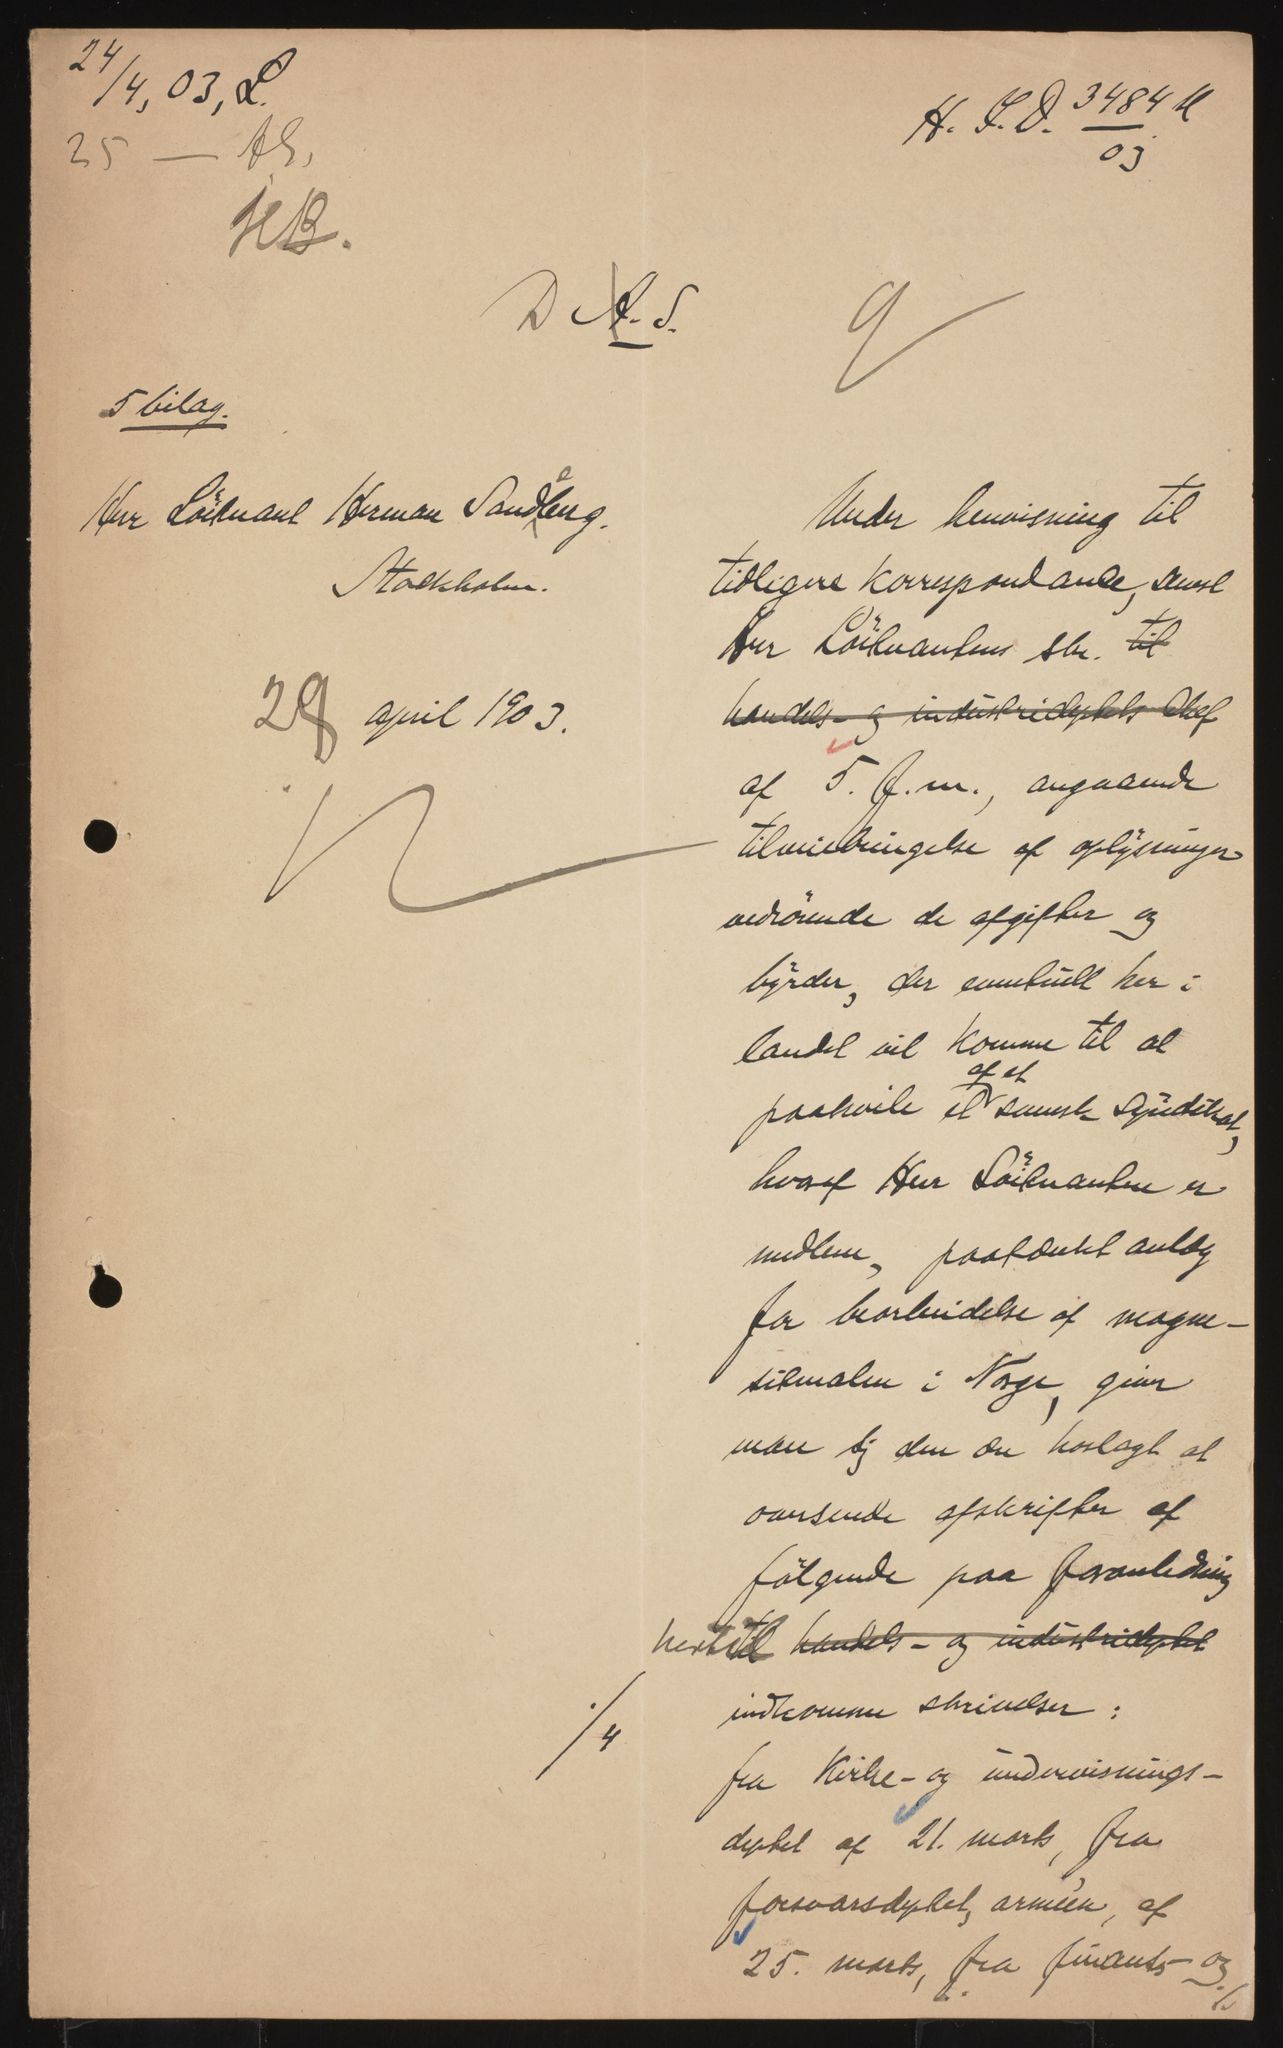 24/4, 03, L.
25 — AE.
HB.
H. I. D. 3484 H
03
D A. S.
5 bilag.
Herr Löitnant Herman Sandeberg.
Stockholm.
28 april 1903.
Under henvisning til
tidligere korrespondance, senest
Herr Löitnantens skr. til
handels- og industridepktets chef
af 5. f.m., angaaende
tilveiebringelse af oplysninger
vedrörende de afgifter og
byrder, der eventuelt her i
landet vil komme til at
paahvile et af et svensk syndikat,
hvoraf Herr Löitnanten er
medlem, paatænkt anlæg
for bearbeidelse af magne-
sitmalm i Norge, giver
man sig den ære hoslagt at
oversende afskrifter af
følgende paa foranledning
hertil handels- og industridepktet
indkomne skrivelser:
fra Kirke- og undervisnings-
depktet af 21. marts, fra
forsvarsdepktet, armeen, af
25. marts, fra finants- og
./4